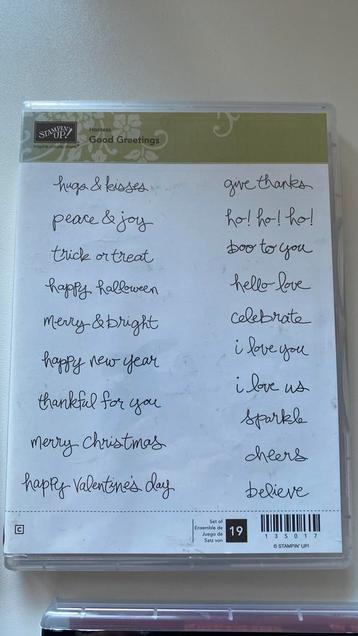 STAMPIN' UP!
Hostess
Good Greetings
hugs & kisses
peace & joy
trick or treat
happy halloween
merry & bright
happy new year
thankful for you
merry christmas
happy valentine's day
give thanks
ho! ho! ho!
boo to you
hello love
celebrate
i love you
i love us
sparkle
cheers
believe
C
Set of
Ensemble de
Juego de
Satz von
19
135017
© STAMPIN' UP!